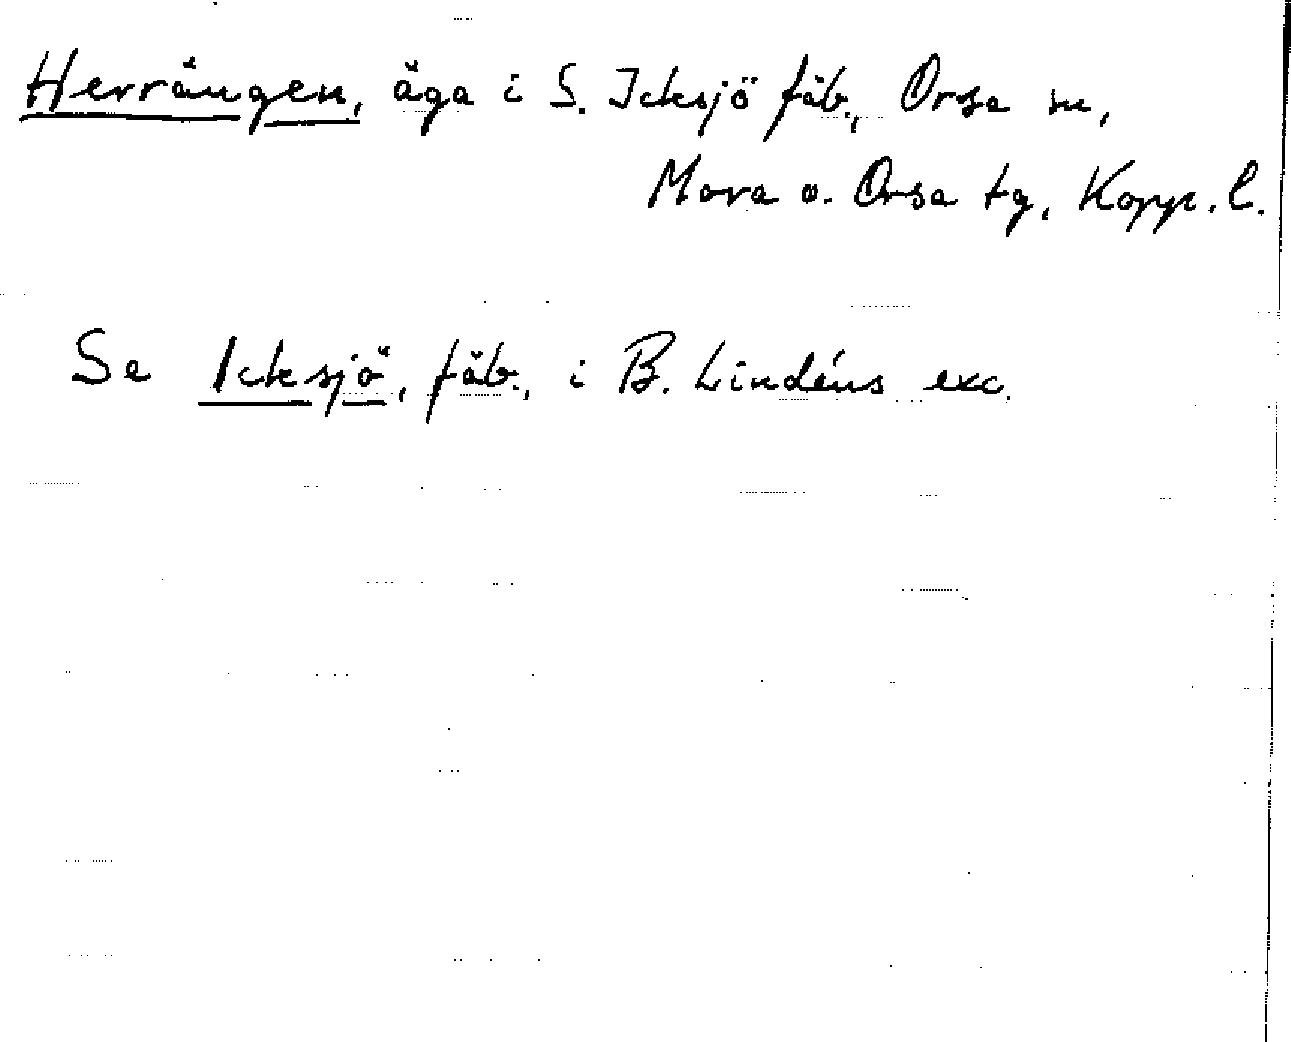 Herrängen, äga i S. Icksjö fäb., Orsa sn,
Mora o. Orsa tg, Kopp. l.
Se Icksjö, fäb., i B. Lindéns exc.